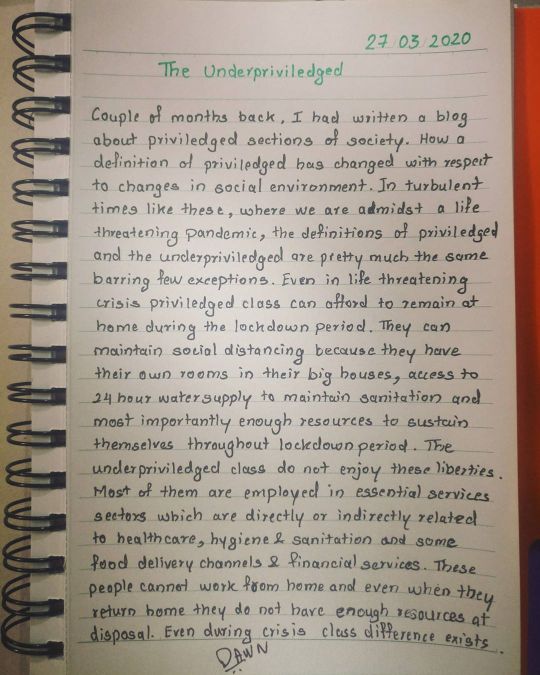 27/03/2020
The Underpriviledged
Couple of months back, I had written a blog
about priviledged sections of society. How a
definition of priviledged has changed with respect
to changes in social environment. In turbulent
times like these, where we are admidst a life
threatening pandemic, the definitions of priviledged
and the underpriviledged are pretty much the same
barring few exceptions. Even in life threatening
crisis priviledged class can afford to remain at
home during the lockdown period. They can
maintain social distancing because they have
their own rooms in their big houses, access to
24 hour water supply to maintain sanitation and
most importantly enough resources to sustain
themselves throughout lockdown period. The
underpriviledged class do not enjoy these liberties.
Most of them are employed in essential services
sectors which are directly or indirectly related
to healthcare, hygiene & sanitation and some
food delivery channels & financial services. These
people cannot work from home and even when they
return home they do not have enough resources at
disposal. Even during crisis class difference exists.
DAWN